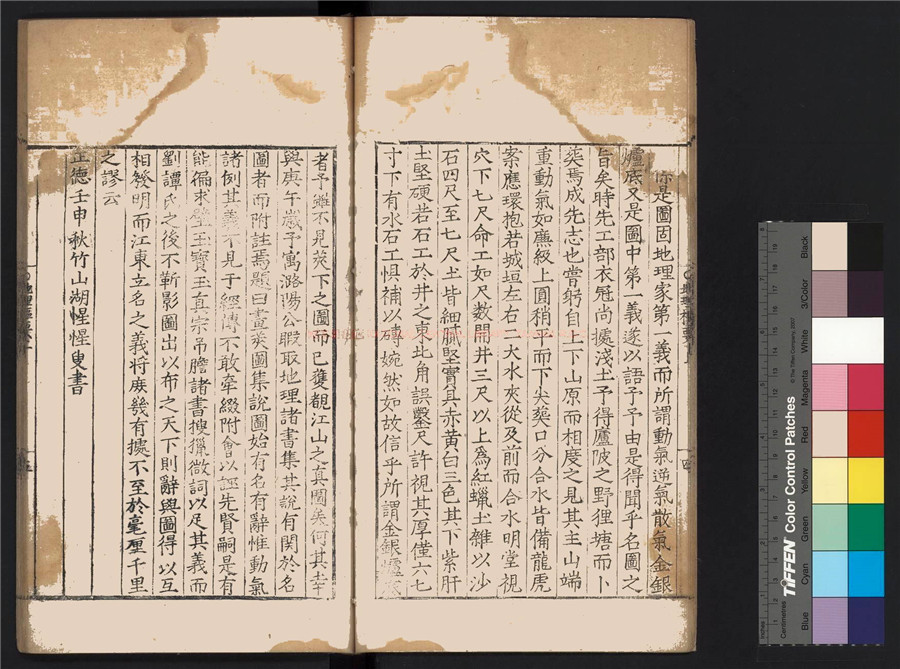 是圖固地理家第一義而所謂動氣逆氣散氣金銀
爐底又是圖中第一義遂以語予予由是得聞乎名圖之
旨矣時先工部衣冠尚攄淺土予得廬陂之野狸塘而卜
葬焉成先志也嘗躬自上下山原而相度之見其主山端
重動氣如廡級上圓稍平而下尖葬口分合水皆備龍虎
案應環抱若城垣左右二大水夾從及前而合水明堂視
穴下七尺命工如尺數開井三尺以上為紅蠟土雜以沙
石四尺至七尺土皆細膩堅實具赤黃白三色其下紫肝
土堅硬若石工於井之東北角誤鑿尺許視其厚僅六七
寸下有水石工惧補以磚婉然如故信乎所謂金銀爐底
者予雖不見葬下之圖而已獲覩江山之真圖矣何其幸
與庚午歲予寓潞陽公暇取地理諸書集其說有関於名
圖者而附註焉題曰畫葬圖集說圖始有名有辭惟動氣
諸例其義不見于經傳不敢牽綴附會以誣先賢嗣是有
能徧求璧玉寶玉真宗吊膽諸書搜獵微詞以足其義而
劉譚氏之後不靳影圖出以布之天下則辭與圖得以互
相發明而江東立名之義將庶幾有據不至於毫厘千里
之謬云
正德壬申秋竹山湖惺惺叟書
Black
3/Color
White
Magenta
Red
Yellow
Green
Cyan
Blue
TIFFEN Color Control Patches
© The Tiffen Company, 2007
Centimetres
Inches